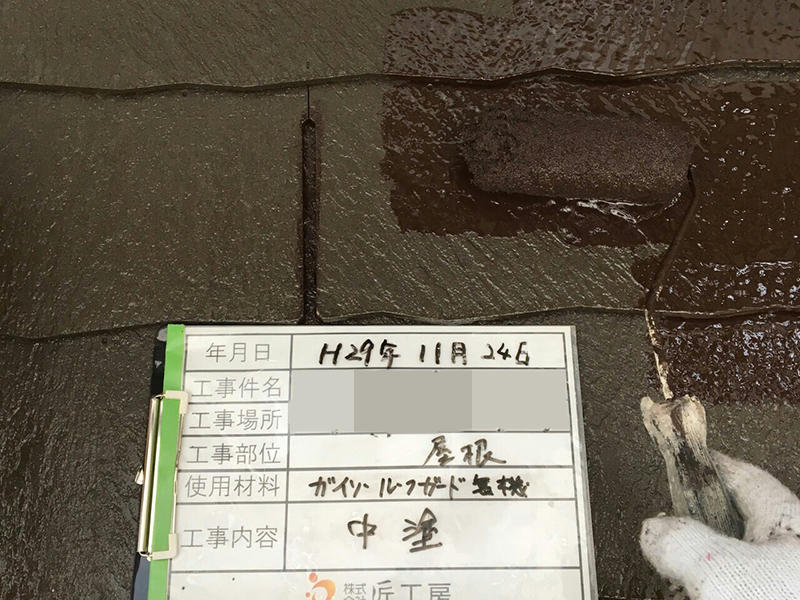 年月日 H29年 11月 24日
工事件名
工事場所
工事部位 屋根
使用材料 ガイソールーフガード無機
工事内容 中塗
株式会社 匠工房